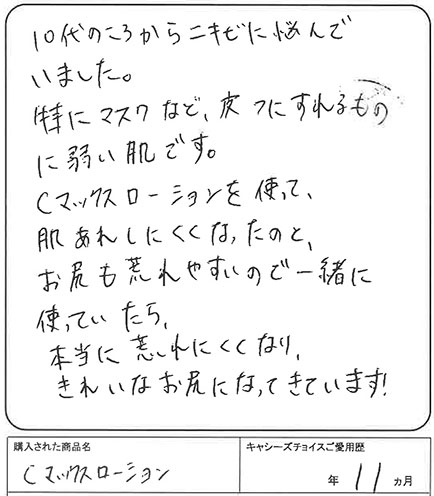 10代のころからニキビに悩んで
いました。
特にマスクなど、皮フにすれるもの
に弱い肌です。
Cマックスローションを使って、
肌あれしにくくなったのと、
お尻も荒れやすいので一緒に
使っていたら、
本当に荒れにくくなり、
きれいなお尻になってきています!
購入された商品名
Cマックスローション
キャシーズチョイスご愛用歴
年 11 ヵ月